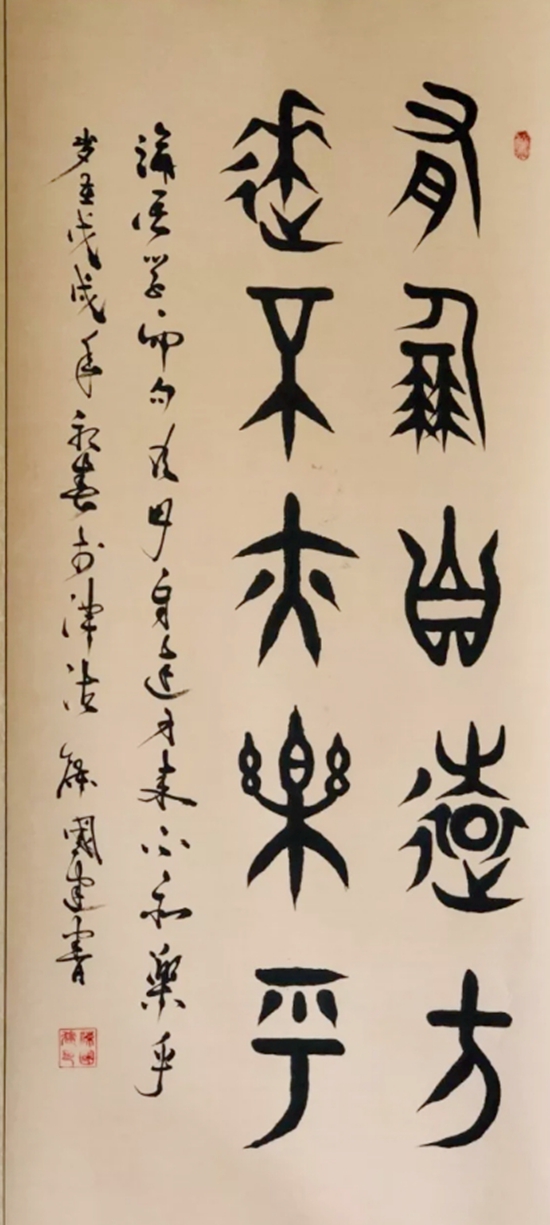 有朋自遠方
來不亦樂乎
論語學而句有朋自遠方來不亦樂乎
歲在戊戌年初春於津沽 國建書